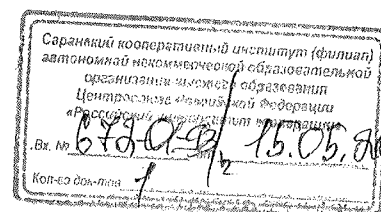 Саранский кооперативный институт (филиал)
автономной некоммерческой образовательной
организации высшего образования
Центросоюза Российской Федерации
«Российский университет кооперации»
Вх. № 672-01-93/2 15.05.
Кол-во док-тов 1